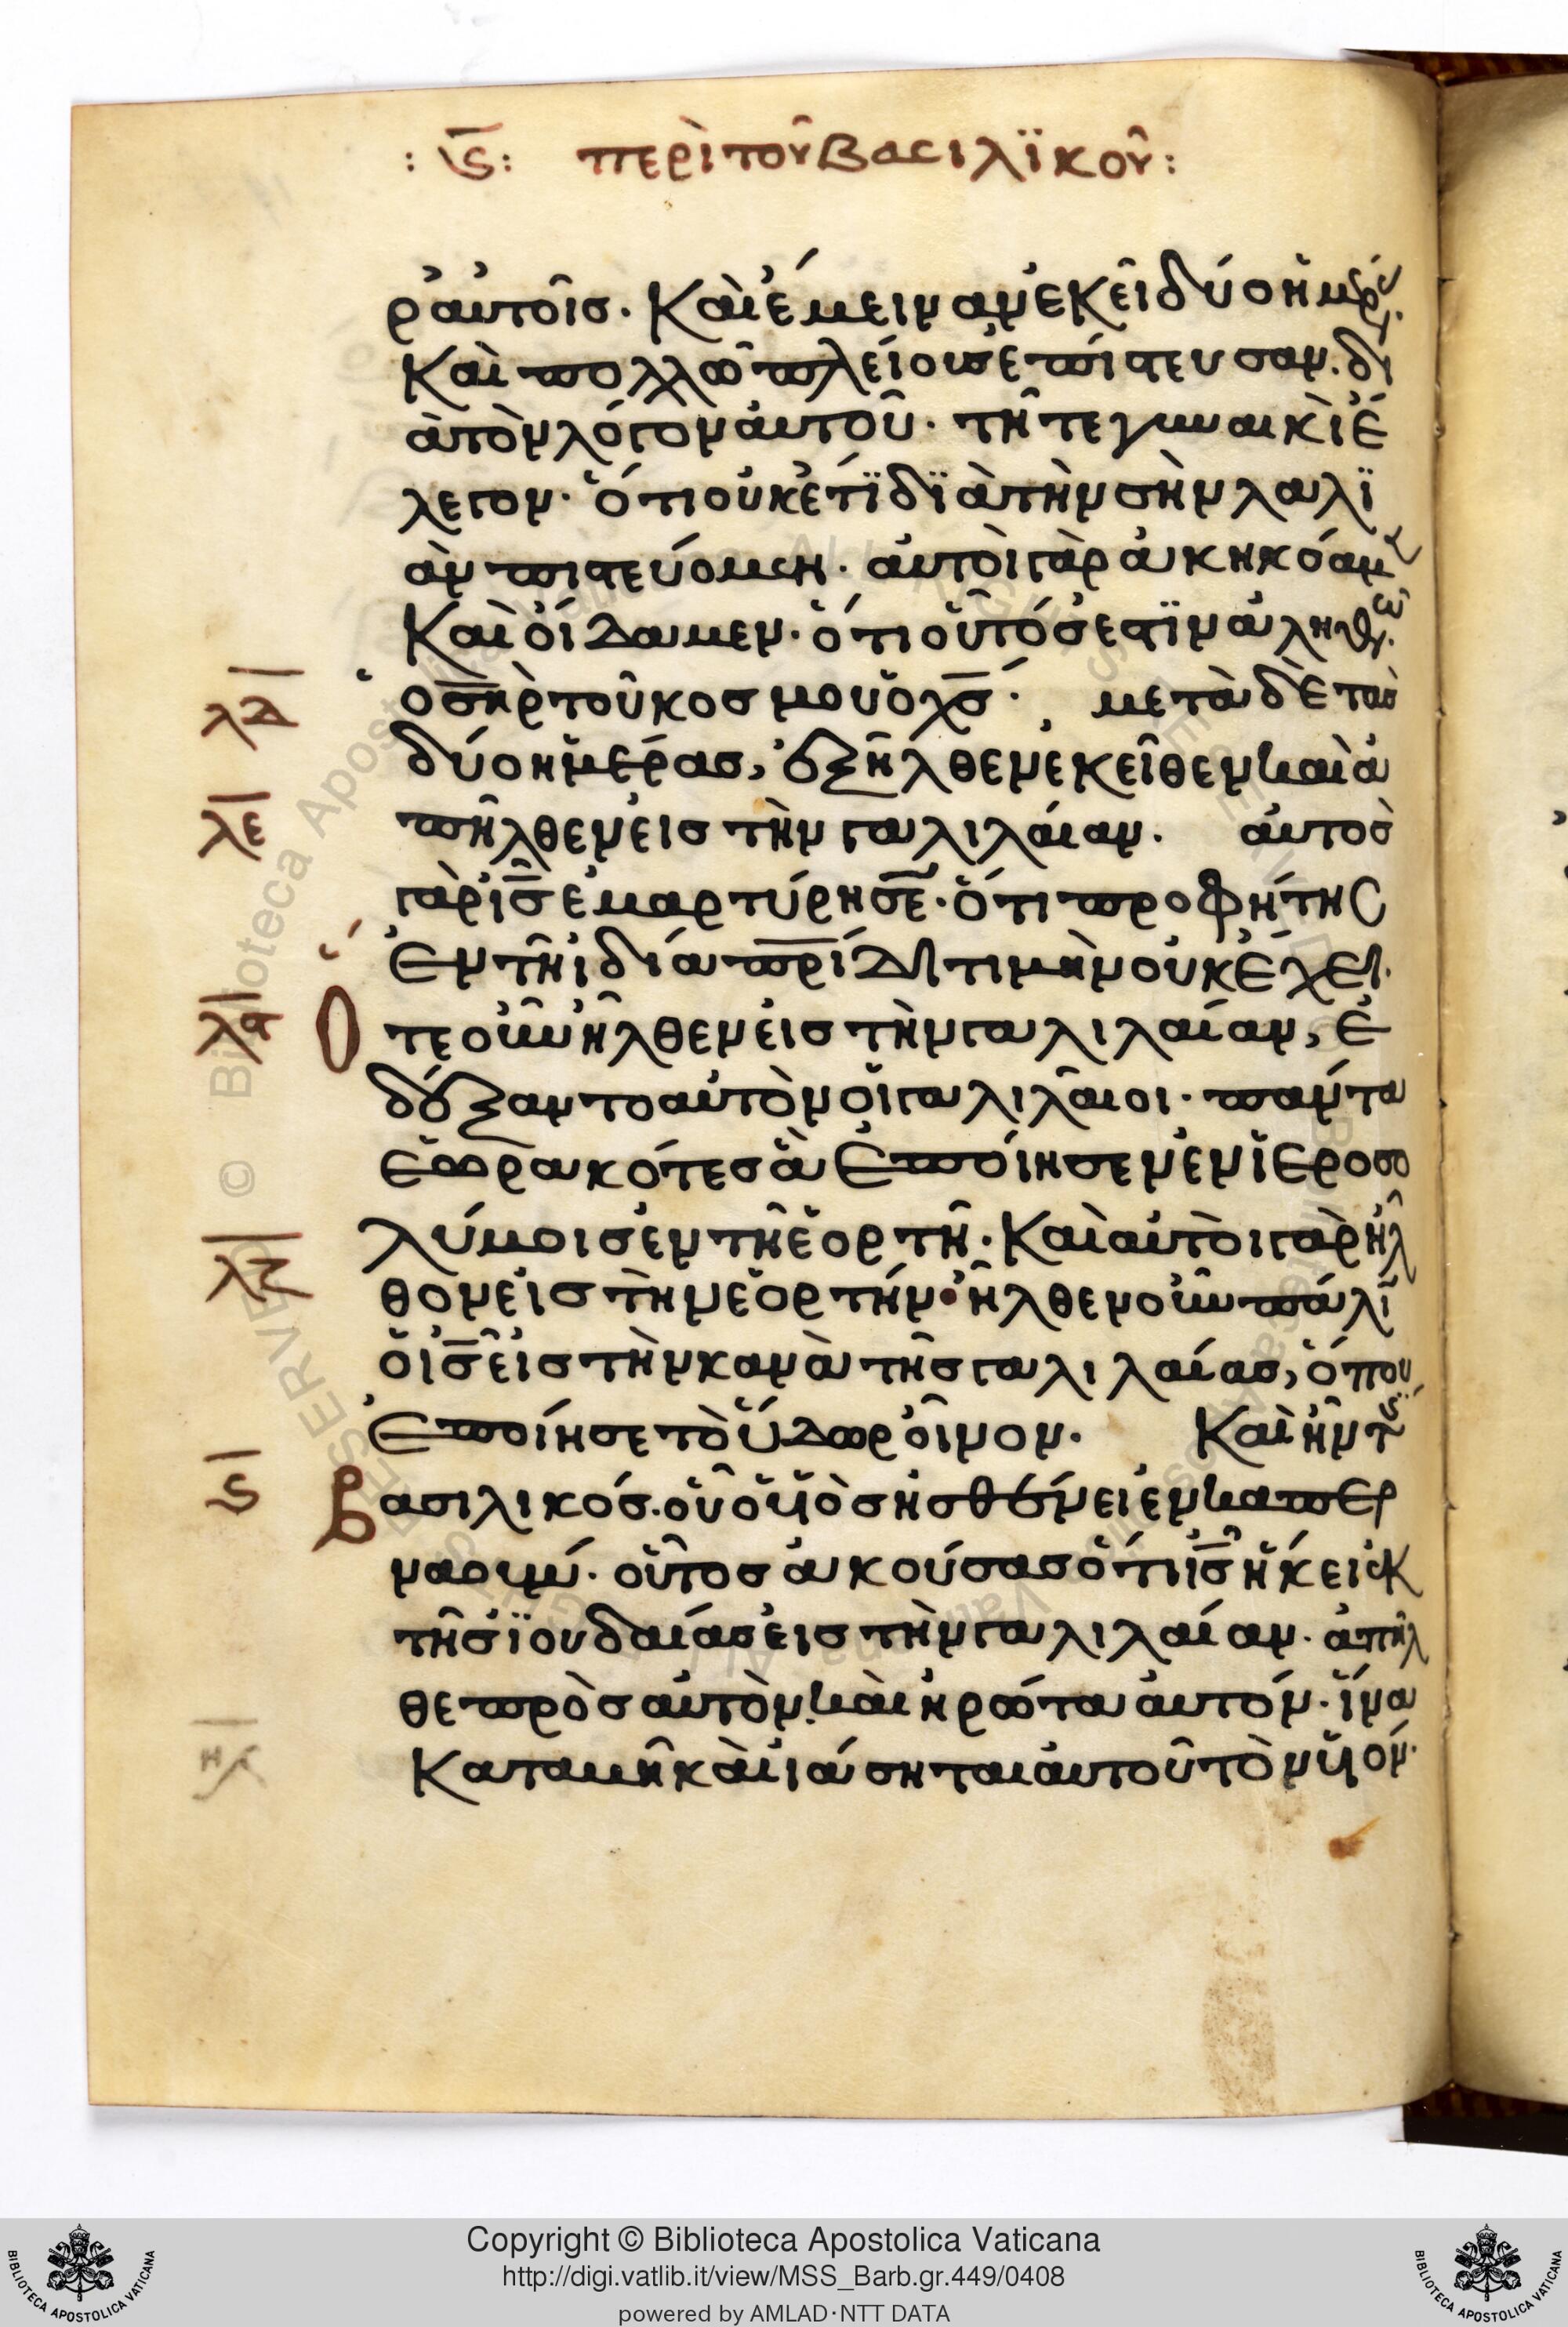 : ς : περὶ τοῦ βασιλϊκοῦ :
ρ αὐτοῖσ. Καὶ ἔμειναν ἐκεῖ δύο ἡμέρ.
Καὶ πολλῶ πλείουσ ἐπίστευσαν. δι
ὰ τὸν λόγον αὐτοῦ. τῆ τε γυναικὶ ἔ
λεγον. ὅτι οὐκέτϊ δϊὰ τὴν σὴν λαλϊ
ὰν πιστεύομεν. αὐτοὶ γὰρ ἀκηκόαμ
Καὶ οἴδαμεν. ὅτι οὗτόσ ἐστϊν ἀληθῶ.
λδ
ὁ σηρ τοῦ κόσμου ὁ χσ. μετὰ δὲ τὰσ
δύο ἡμέρασ, ἐξῆλθεν ἐκεῖθεν καὶ ἀ
λε
πῆλθεν εἰσ τὴν γαλιλαίαν. αὐτὸσ
γὰρ ἰσ ἐμαρτύρησε. ὅτι προφήτησ
ἐν τῆ ἰδία πρίδι τιμὴν οὐκ ἔχει.
λς
Ὅ τε οὖν ἦλθεν εἰσ τὴν γαλιλαίαν, ἐ
δέξαντο αὐτὸν οἱ γαλιλαῖοι. πάντα
ἑωρακότεσ ἃ ἐποίησεν ἐν ἱεροσο
λύμοισ ἐν τῆ ἑορτῆ. Καὶ αὐτοὶ γὰρ ἦλ
λζ
θον εἰσ τὴν ἑορτήν. ἦλθεν οὖν πάλϊ
ὁ ισ εἰσ τὴν κανὰ τῆσ γαλιλαίασ, ὅπου
ἐποίησε τὸ ὕδωρ οἶνον. Καὶ ἦν τϊσ
ς
Βασιλικόσ. οὗ ὁ υἱὸσ ἠσθένει ἐν καπερ
ναούμ. οὗτοσ ἀκούσασ ὅτι ισ ἥκει ἐκ
τῆσ ϊουδαίασ εἰσ τὴν γαλιλαίαν. ἀπῆλ
θε πρὸσ αὐτὸν. καὶ ἠρώτα αὐτόν. ἵνα
Καταβῆ καὶ ἰάσηται αὐτοῦ τὸν υἱόν.
Copyright © Biblioteca Apostolica Vaticana
http://digi.vatlib.it/view/MSS_Barb.gr.449/0408
powered by AMLAD·NTT DATA
BIBLIOTECA APOSTOLICA VATICANA
BIBLIOTECA APOSTOLICA VATICANA